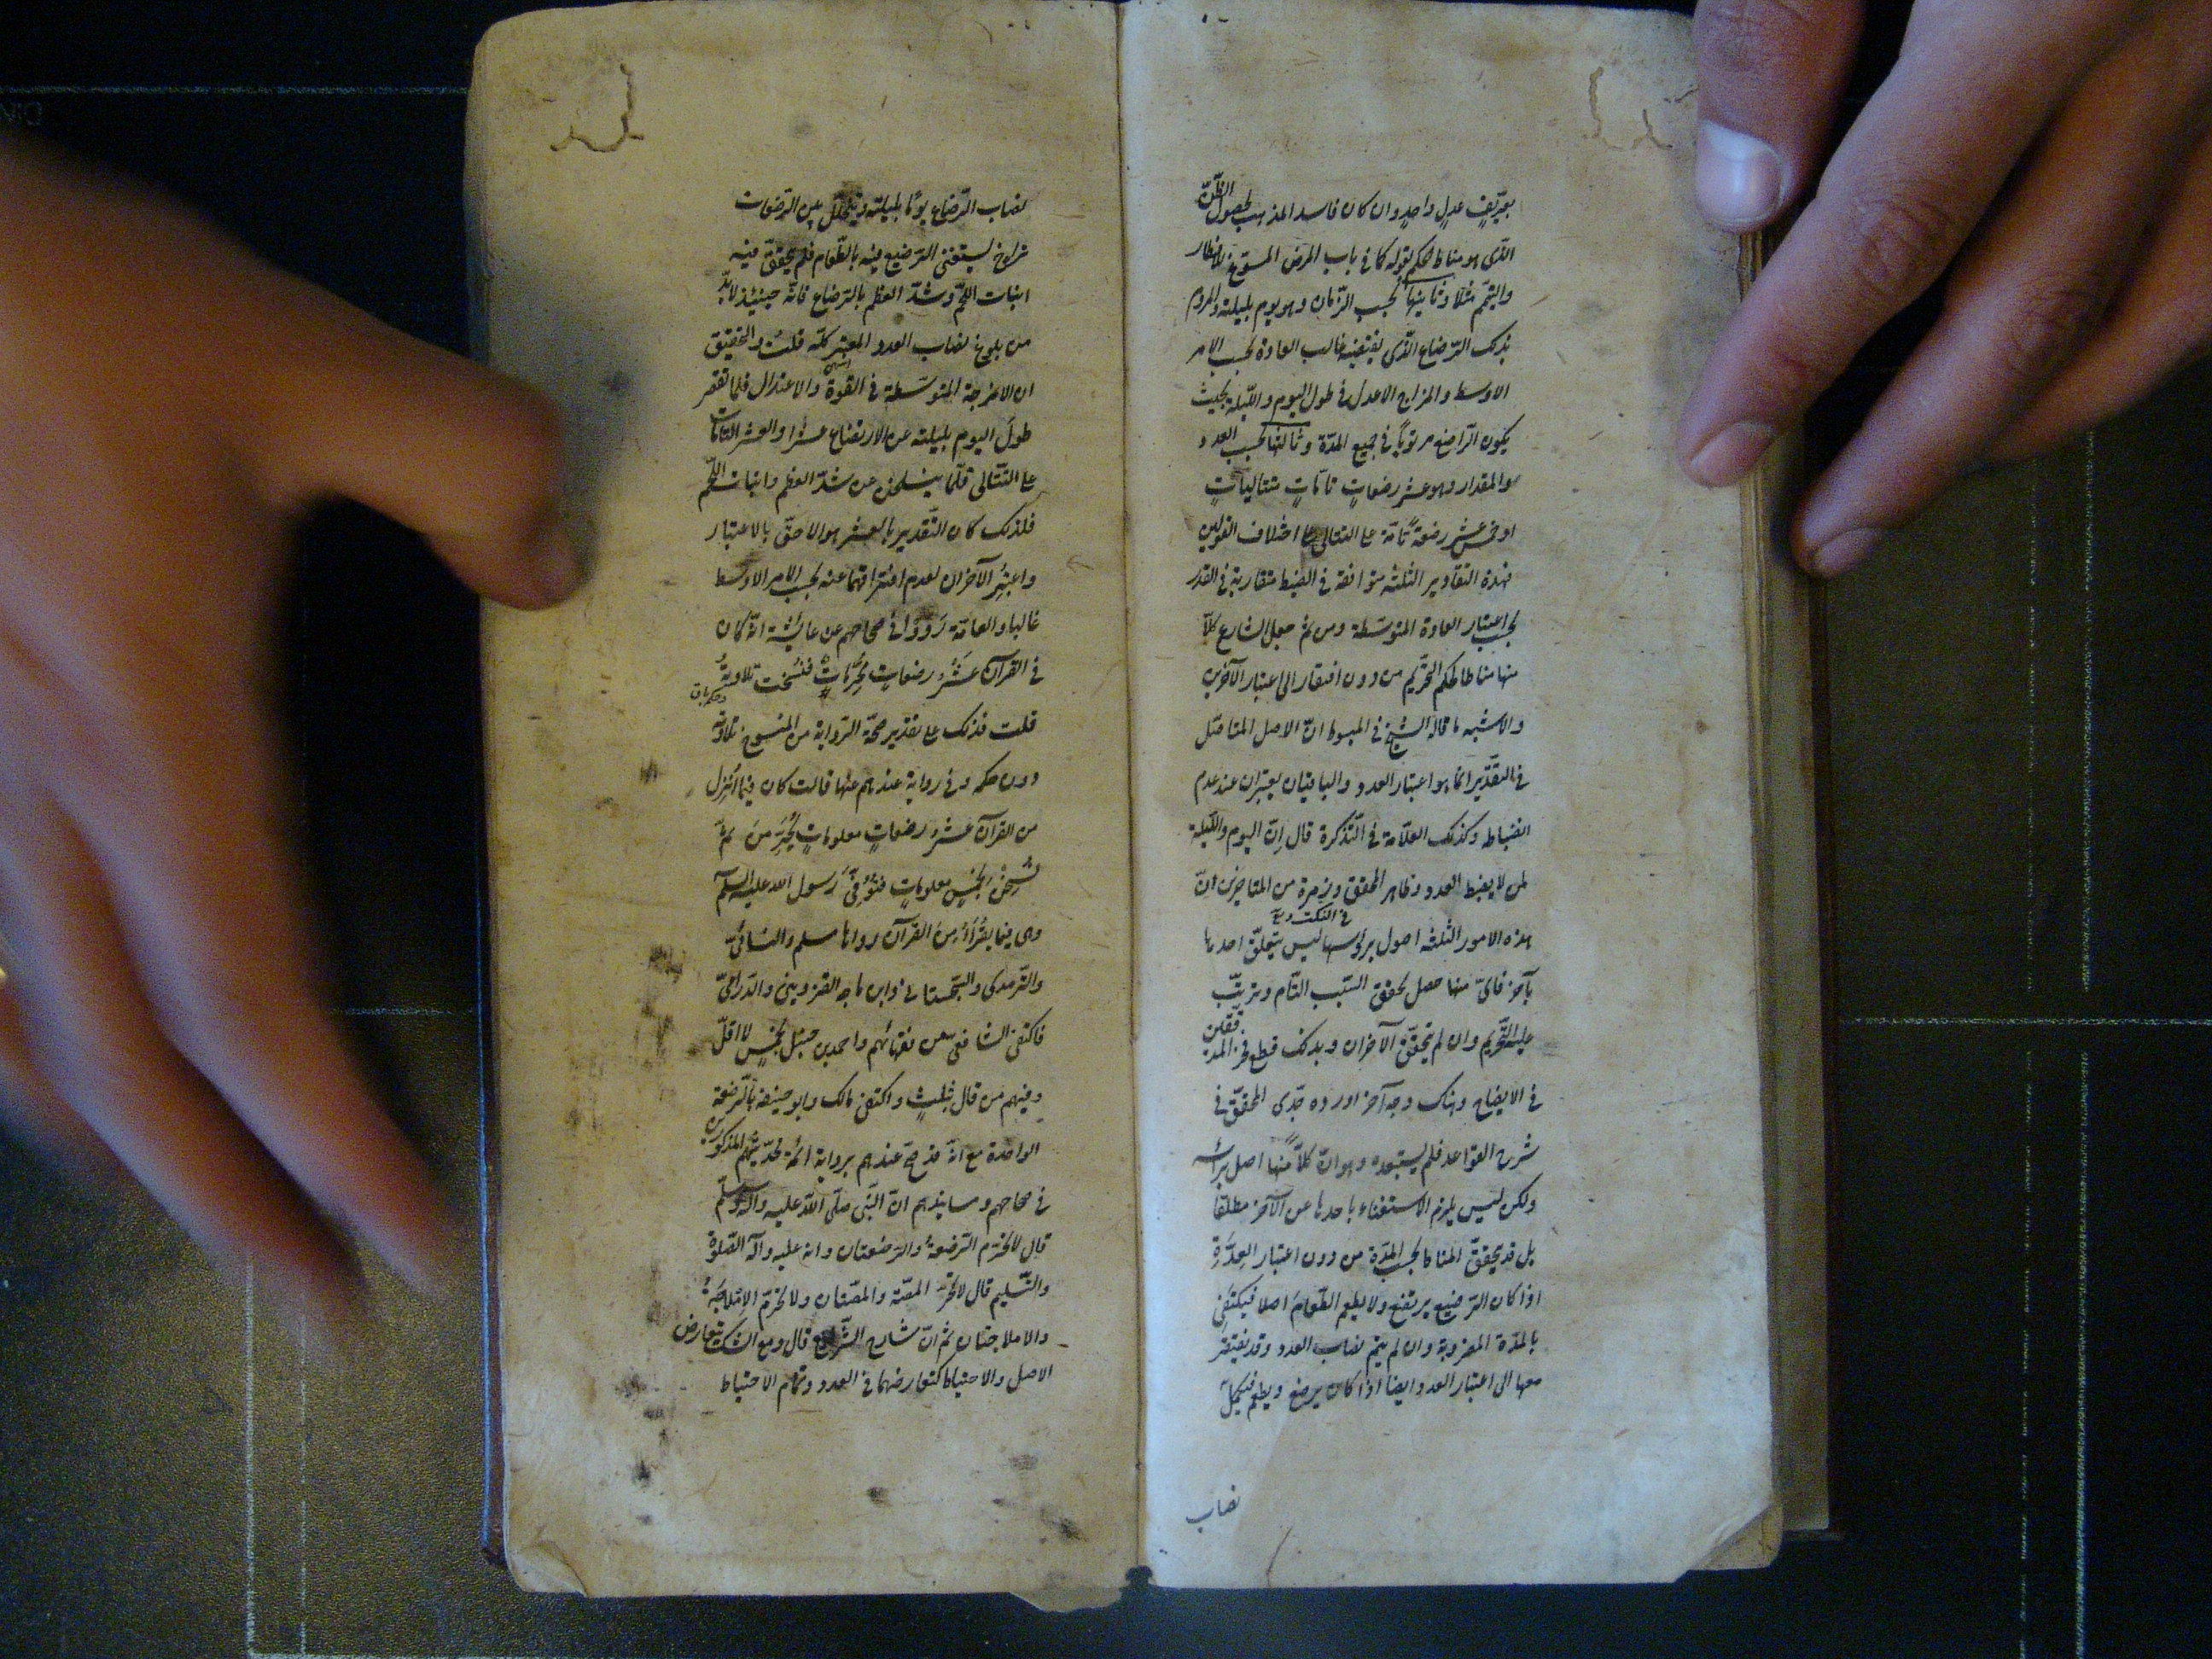 بتعريف عدل واحد وان كان فاسد المذهب لحصول الظنّ
الذى هو مناط الحكم بقوله كما فى باب المرض المسوّغ للافطار
والتيمّم مثلا وثانيها بحسب الزّمان وهو يوم بليلته والمروم
بذلك الرّضاع الّذى يقتضيه غالب العادة بحسب الامر
الاوسط والمزاج الاعدل فى طول اليوم واللّيلة بحيث
يكون الرّاضع مرتويًا فى جميع المدّة وثالثها بحسب العدد
والمقدار وهو عشر رضعاتٍ تامّاتٍ متتالياتٍ
او خمس عشر رضعةً تامّة على التتالى على اختلاف القولين
فهذه التقادير الثلثة متوافقة فى الضبط متقاربة فى القدر
بحسب اعتبار العادة المتوسّطة ومن ثمّ جعل الشارع كلاًّ
منها مناطا لحكم التحريم من دون افتقار الى اعتبار الآخرين
والاشبه ما قاله الشيخ فى المبسوط انّ الاصل المتاصّل
فى التقدير انّما هو اعتبار العدد والباقيان يعتبران عند عدم
انضباطه وكذلك العلّامة فى التّذكرة قال إنّ اليوم واللّيلة
لمن لا يضبط العدد وظاهر المحقق وزمرة من المتاخّرين انّ
فى النكت
هذه الامور الثلثة اصول برؤسها ليس يتعلّق احدها
بآخر فاىّ منها حصل تحقق السّبب التّام وترتّب
عليه التّحريم وان لم يتحقّق الآخران وبذلك قطع فخر المدققين
فى الايضاح وهناك وجه آخر اورده جدّى المحقّق فى
شرح القواعد فلم يستبعده وهو انّ كلاًّ منها اصل برأسه
ولكن ليس يلزم الاستغناء باحدها عن الآخر مطلقا
بل قد يتحقّق المناط بحسب المدّة من دون اعتبار العِدّة
اذا كان الرّضيع يرتضع ولا يطعم الطّعامَ اصلا فيكتفى
بالمدّة المضروبة وان لم يتمّ نصاب العدد وقد يفتقر
معها الى اعتبار العدد ايضا اذا كان يرضع ويطعم فيكمل
نصاب
نصاب الرّضاع يومًا بليلته ويتخلّل بين الرّضعات
يستغنى الرّضيع فيه بالطّعام فلم يتحقّق فيه
انبات اللّحم وشدّ العظم بالرّضاع فانّه حينئذ لابدّ
من بلوغ نصاب العدد المعتبر كلّه قلت والتحقيق
ان الامزجة المتوسّطة فى القوة والاعتدال قلّما تقصر
طول اليوم بليلته عن الارتضاع عشرًا والعشر التامّات
على التّتالى قلّما ينسلخن عن شدّ العظم وانبات اللّحم
فلذلك كان التّقدير بالعشر هو الاحقّ بالاعتبار
واعتُبِرَ الآخران لعدم افتراقهما عنه بحسب الامر الاوسط
غالبا والعامّة رَوَوْا فى صحاحهم عن عايشة انّه كان
فى القرآن عَشْرُ رضعاتٍ مُحرِّماتٌ فنُسخت تلاوتُهُ
قلت فذلك على تقدير صحّة الرّواية من المنسوخ تلاوته
دون حكمه وفى رواية عندهم عنها قالت كان فيما أُنزِل
من القرآن عشرُ رضعاتٍ معلوماتٍ يُحَرِّمنَ ثمّ
نُسِخْنَ بخمسٍ معلوماتٍ فتُوُفِّىَ رسول الله عليه السلم
وهى فيما يُقْرَأُ مِنَ القرآن رواها مسلم والنسائىّ
والتّرمذى والسّجستانى وابن ماجه القزوينى والدّرامىّ
فاكتفى الشافعى من فقهائهم واحمد بن حنبل بخمسٍ لا اقلّ
وفيهم من قال بثلثٍ واكتفى مالك وابو حنيفة بالرّضعة
الواحدة مع انّه قد صحّ عندهم برواية ائمّة محدّثيهم المذكورين
فى صحاحهم ومسانيدهم انّ النّبى صلّى اللّه عليه وآله وسلّم
قال لا تحرّم الرّضعةُ والرّضعتان وانه عليه وآله الصّلوة
والتّسليم قال لا تحرّم المصّة والمصّتان ولا تحرّم الاملاجةُ
والاملاجتان ثمّ انّ شارح الشّرايع قال ومع الشك يتعارض
الاصل والاحتياط كتعارضهما فى العدد وتمام الاحتياط